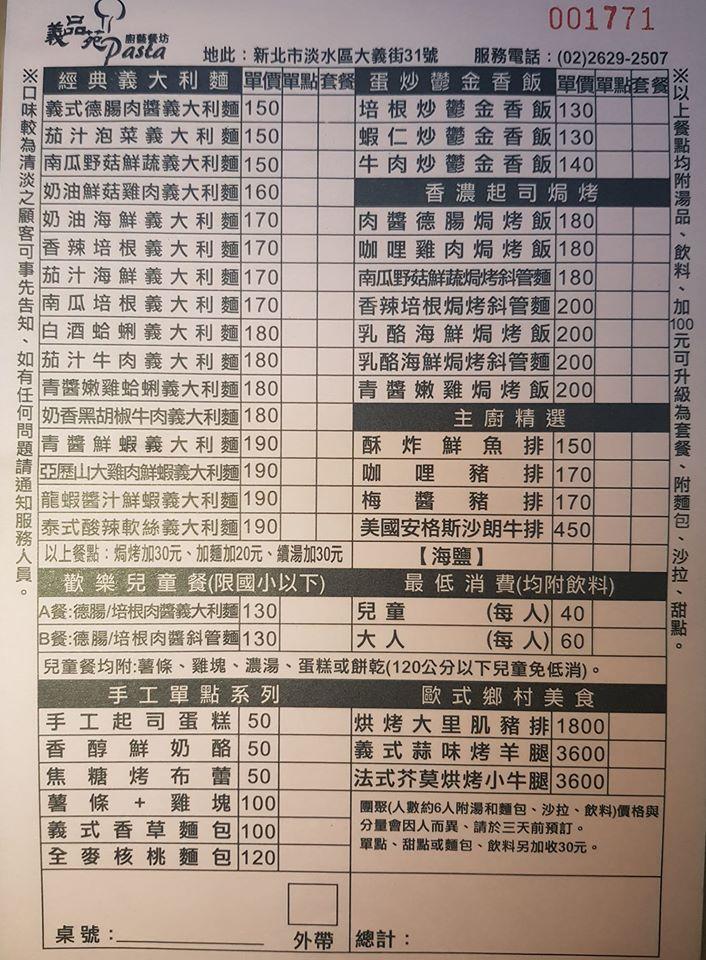 001771
義品苑 廚藝餐坊
Pasta
地此：新北市淡水區大義街31號 服務電話：(02)2629-2507
※口味較為清淡之顧客可事先告知、如有任何問題請通知服務人員。
經典義大利麵 單價 單點 套餐
義式德腸肉醬義大利麵 150
茄汁泡菜義大利麵 150
南瓜野菇鮮蔬義大利麵 150
奶油鮮菇雞肉義大利麵 160
奶油海鮮義大利麵 170
香辣培根義大利麵 170
茄汁海鮮義大利麵 170
南瓜培根義大利麵 170
白酒蛤蜊義大利麵 180
茄汁牛肉義大利麵 180
青醬嫩雞蛤蜊義大利麵 180
奶香黑胡椒牛肉義大利麵 180
青醬鮮蝦義大利麵 190
亞歷山大雞肉鮮蝦義大利麵 190
龍蝦醬汁鮮蝦義大利麵 190
泰式酸辣軟絲義大利麵 190
以上餐點：焗烤加30元、加麵加20元、續湯加30元
蛋炒鬱金香飯 單價 單點 套餐
培根炒鬱金香飯 130
蝦仁炒鬱金香飯 130
牛肉炒鬱金香飯 140
香濃起司焗烤
肉醬德腸焗烤飯 180
咖哩雞肉焗烤飯 180
南瓜野菇鮮蔬焗烤斜管麵 180
香辣培根焗烤斜管麵 200
乳酪海鮮焗烤飯 200
乳酪海鮮焗烤斜管麵 200
青醬嫩雞焗烤飯 200
主廚精選
酥炸鮮魚排 150
咖哩豬排 170
梅醬豬排 170
美國安格斯沙朗牛排 450
【海鹽】
※以上餐點均附湯品、飲料、加100元可升級為套餐、附麵包、沙拉、甜點。
歡樂兒童餐(限國小以下)
A餐:德腸/培根肉醬義大利麵 130
B餐:德腸/培根肉醬斜管麵 130
最低消費(均附飲料)
兒童 (每人) 40
大人 (每人) 60
兒童餐均附:薯條、雞塊、濃湯、蛋糕或餅乾(120公分以下兒童免低消)。
手工單點系列
手工起司蛋糕 50
香醇鮮奶酪 50
焦糖烤布蕾 50
薯條+雞塊 100
義式香草麵包 100
全麥核桃麵包 120
歐式鄉村美食
烘烤大里肌豬排 1800
義式蒜味烤羊腿 3600
法式芥莫烘烤小牛腿 3600
團聚(人數約6人附湯和麵包、沙拉、飲料)價格與
分量會因人而異、請於三天前預訂。
單點、甜點或麵包、飲料另加收30元。
桌號： 外帶 總計：